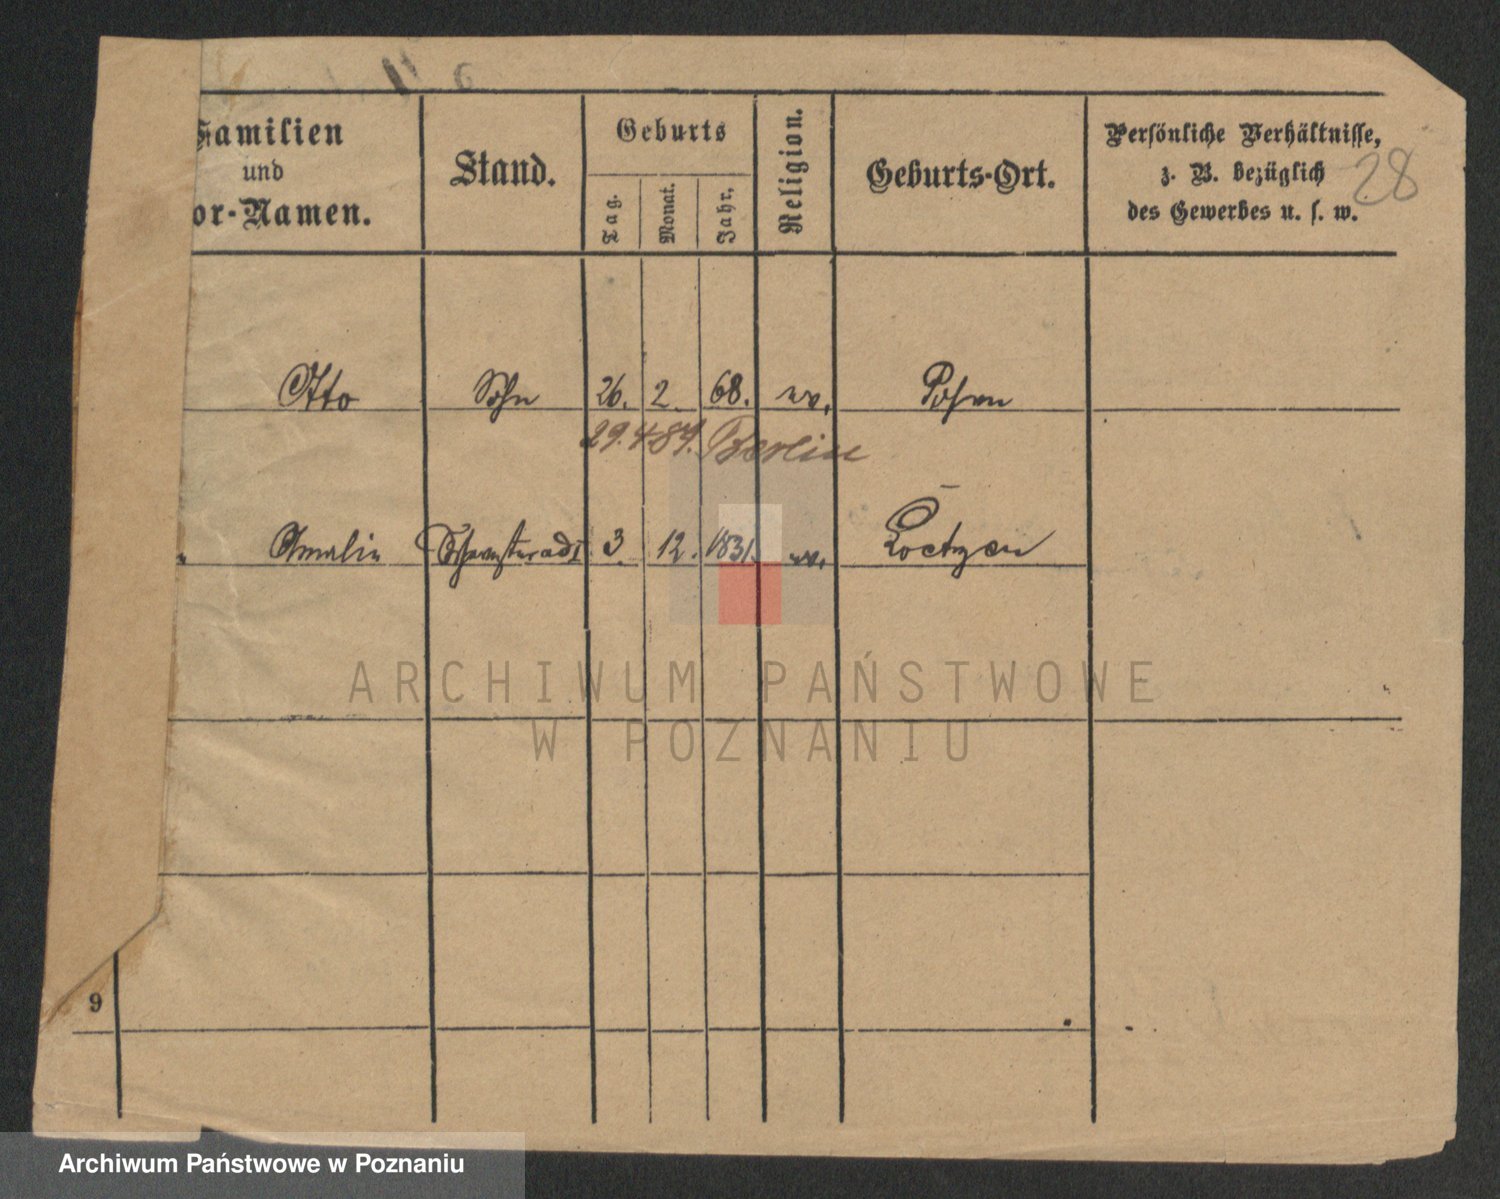 Familien
und
or-Namen.
Stand.
Geburts
Tag.
Monat.
Jahr.
Religion.
Geburts-Ort.
Persönliche Verhältnisse,
z. B. bezüglich
des Gewerbes u. s. w.
28
Otto Sohn 26. 2. 68. ev. Posen
29.4.87. Berlin
Amalie 3. 12. 1831. ev. Loetzen
9
ARCHIWUM PAŃSTWOWE
W POZNANIU
Archiwum Państwowe w Poznaniu